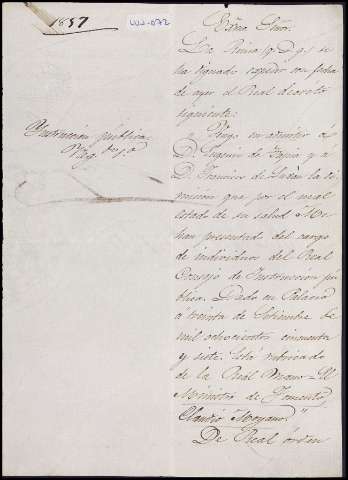 1857
UUU-072
Instrucción pública
Neg.do 1.o
Excmo. Señor:
La Reina (q. D. g.) se
ha dignado expedir con fecha
de ayer el Real decreto
siguiente:
" Vengo en admitir á
D. Eugenio de Tapia y á
D. Francisco de Luxán la di-
misión que por el mal
estado de su salud Me
han presentado del cargo
de individuos del Real
Consejo de Instrucción pú-
blica. Dado en Palacio
á treinta de Setiembre de
mil ochocientos cincuenta
y siete. Está rubricado
de la Real Mano = El
Ministro de Fomento,
Claudio Moyano."
De Real órden